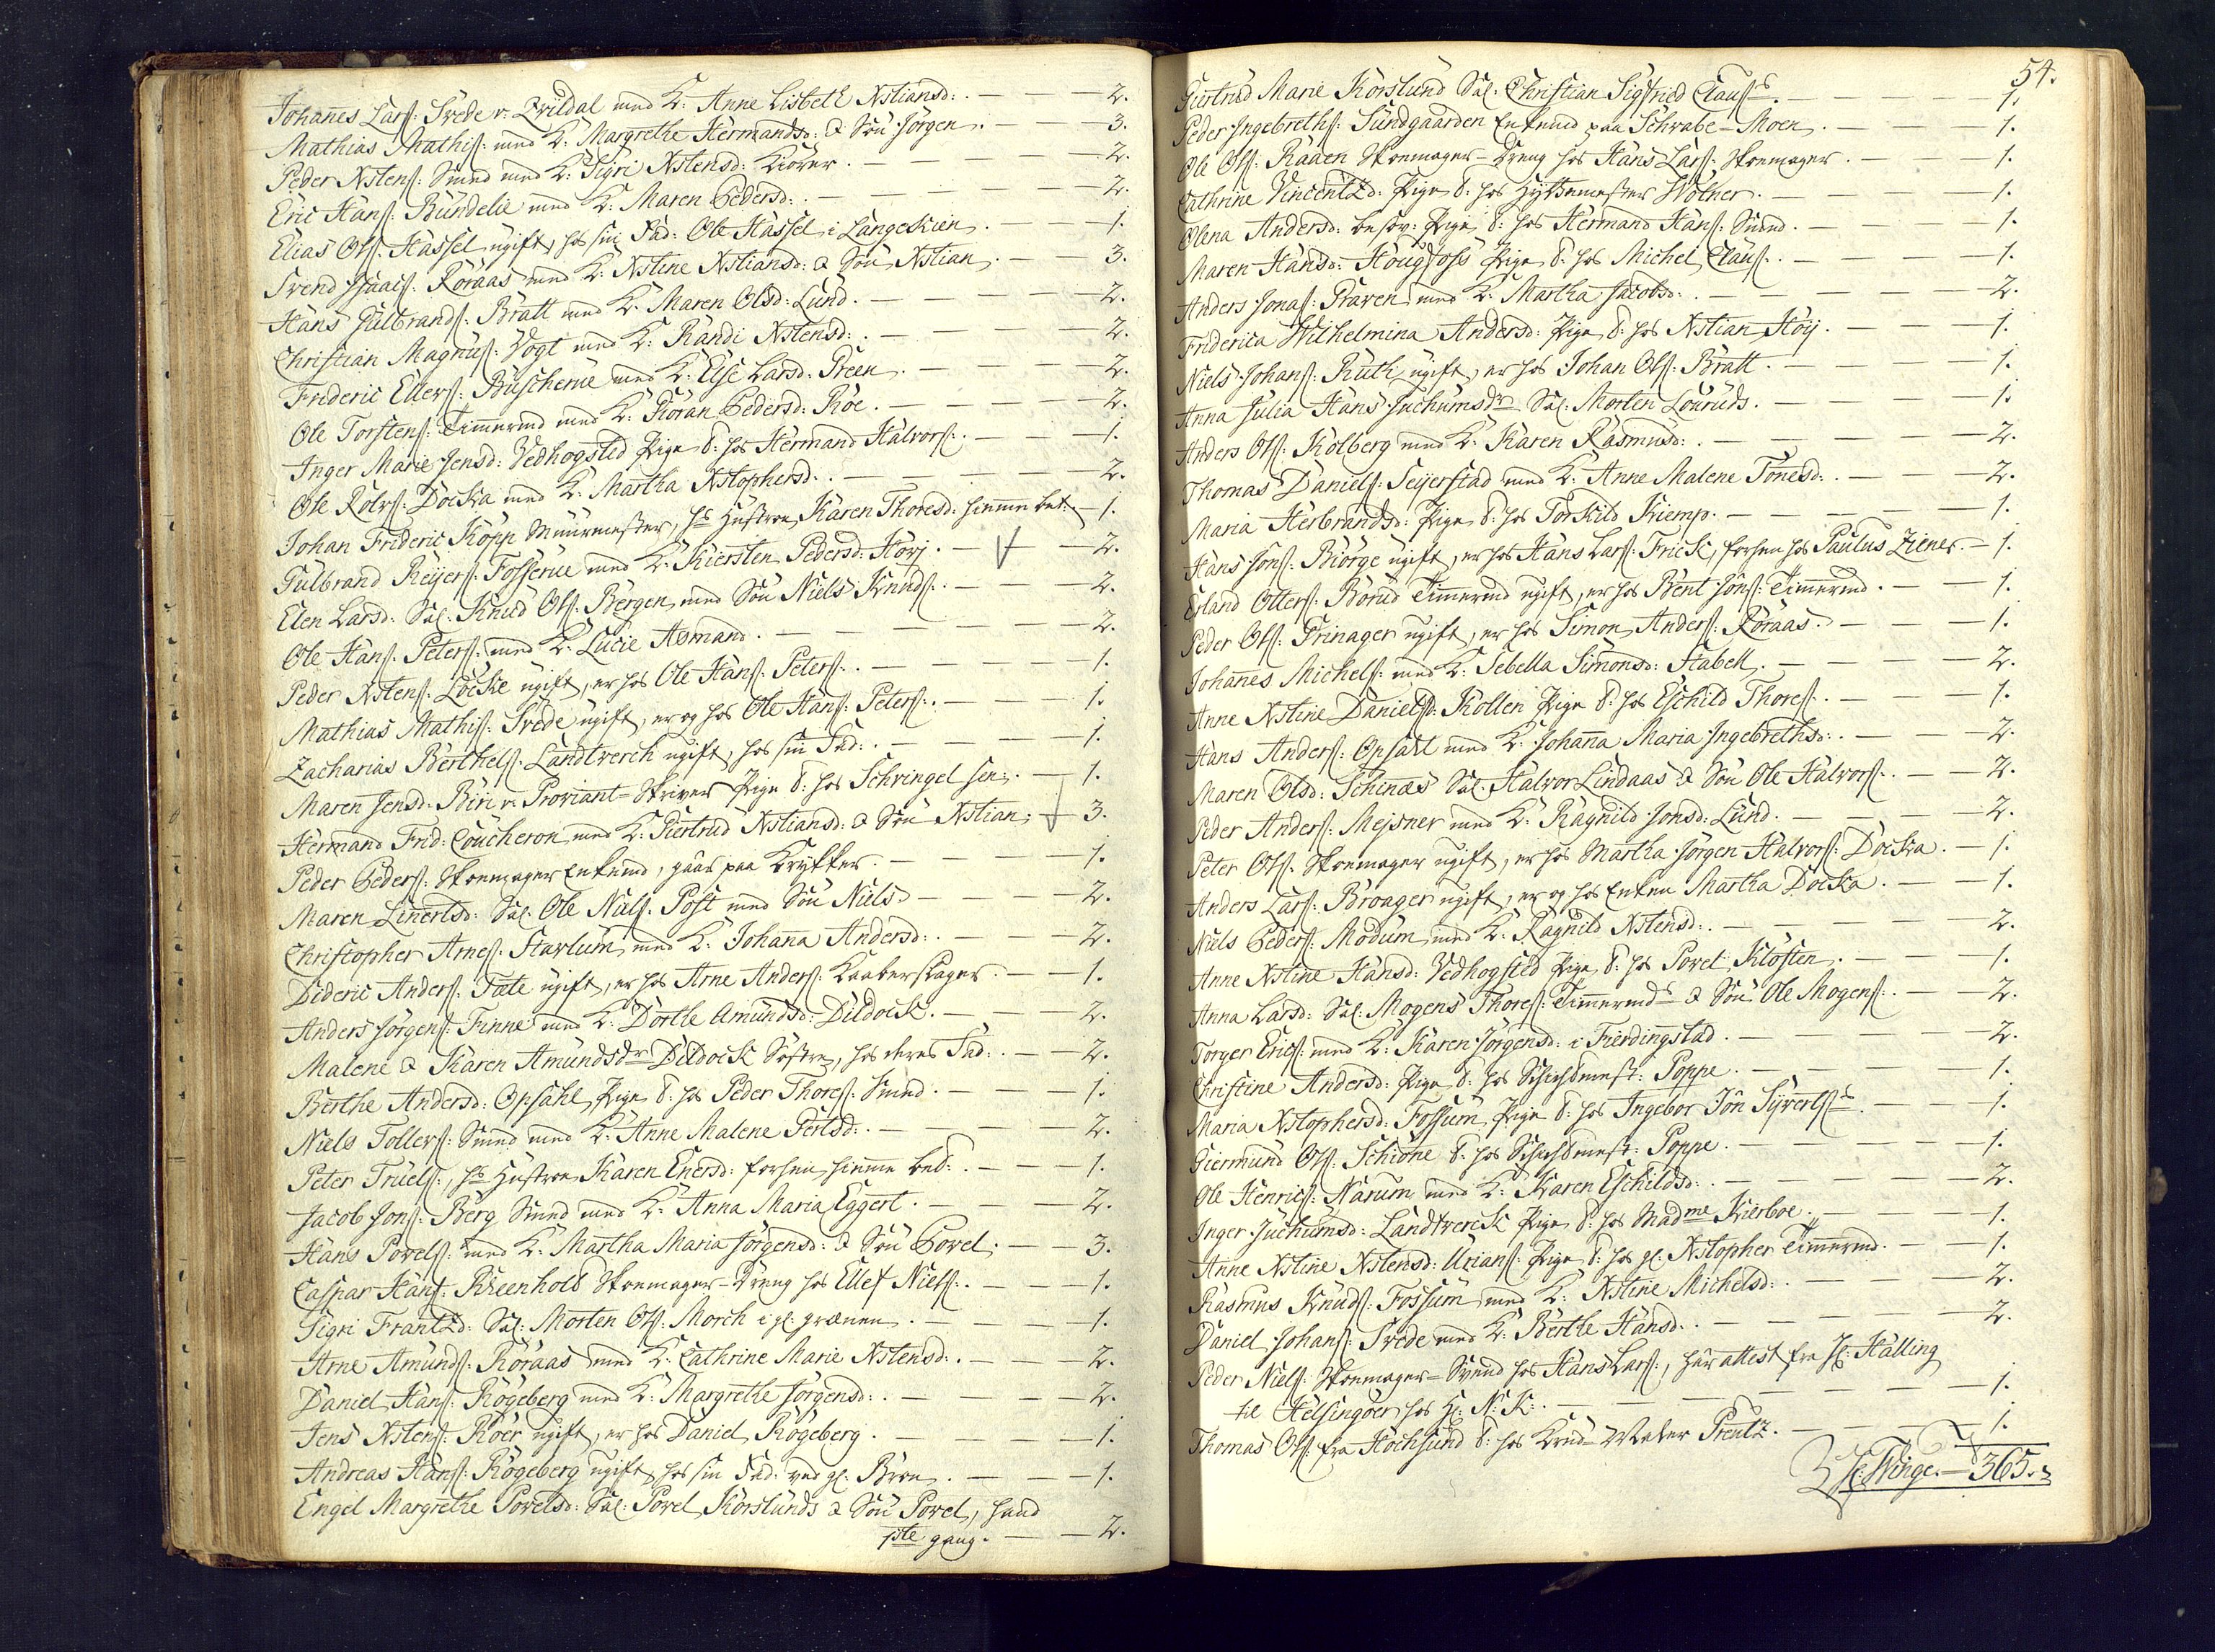 Johanes Larſ: Svede v. Qvildal med K: Anne Lisbeth Xstiansd: . — — 2.
Mathias Mathiſ: med K: Margrethe Hermandsd: & Søn Jörgen. — — 3.
Peder Xstenſ: Smed med K: Sigri Xstensd: — — 2.
Eric Hanſ: Bundelie med K: Maren Pedersd: . — — 2.
Elias Olſ: Hassel ugift, hos sin Fad: Ole Hassel i Langeskien. — 1.
Svend Isaacſ: Röraas med K: Xstine Xstiansd: & Søn Xstian. — 3.
Hans Gulbrandſ: Bratt med K: Maren Olsd: Lund. — — 2.
Christian Magnuſ: Vogt med K: Randi Xstensd: . — — 2.
Frideric Ellerſ: Buscherue med K: Else Larsd: Preen. — — 2.
Ole Torstenſ: Timermd med K: Göran Pedersd: Röe. — — 2.
Inger Marie Jensd: Vedhogsted Pige d: hos Hermand Halvorſ: . — 1.
Ole Rolvſ: Docka med K: Martha Xstophersd: . — — 2.
Johan Frideric Köpp Muurmester, hs Hustroe Karen Thoresd: himme bet: 1.
Gulbrand Reijerſ: Fosserue med K: Kiersten Pedersd: Hovj. — 2.
Elen Larsd: Sal: Knud Olſ: Bergen med Søn Niels Knudſ: . — 2.
Ole Hanſ: Peterſ: med K: Lucie Asmand. — — 2.
Peder Xstenſ: Löcke ugift, er hos Ole Hanſ: Peterſ: . — — 1.
Mathias Mathiſ: Svede ugift, er og hos Ole Hanſ: Peterſ: . — 1.
Zacharias Berthelſ: Landtverch ugift, hos sin Fad: . — — 1.
Maren Jensd: Biri v. Proviant-Skriver Pige d: hos Schringel sen: . — 1.
Hermand Frid: Coucheron med K: Giertrud Xstiansd: & Søn Xstian; 3.
Peder Pederſ: Skoemager Enkemd, gaar paa Krykker. — — 1.
Maren Linertsd: Sal: Ole Nielſ: Post med Søn Niels. — — 2.
Christopher Arneſ: Starlum med K: Johana Andersd: . — — 2.
Dideric Anderſ: Tæte ugift, er hos Arne Anderſ: Kaaberslager. — 1.
Anders Jörgenſ: Finne med K: Dorthe Amundsd: Dildock. — — 2.
Malene & Karen Amundsdr Dildock Søstre, hos deres Fad: . — 2.
Berthe Andersd: Opsahl Pige d: hos Peder Thoreſ: Smed. — 1.
Niels Tollerſ: Smed med K: Anne Malene Pertsd: . — — 2.
Peter Truelſ:, hs Hustroe Karen Enersd: forhen himme bed: . — 1.
Jacob Jonſ: Berg Smed med K: Anna Maria Eggert. — — 2.
Hans Povelſ: med K: Martha Maria Jörgensd: & Søn Povel. — 3.
Caspar Hanſ: Rheenhold Skoemager-Dreng hos Ellef Nielſ: . — 1.
Sigri Frantzd: Sal: Morten Olſ: Morch i gl: grænen. — — 1.
Arne Amundſ: Röraas med K: Cathrine Marie Xstensd: . — — 2.
Daniel Hanſ: Rögeberg med K: Margrethe Jörgensd: . — — 2.
Jens Xstenſ: Röer ugift, er hos Daniel Rögeberg. — — 1.
Andreas Hanſ: Rögeberg ugift, hos sin Fad: ved gl: Broe. — 1.
Engel Margrethe Povelsd: Sal: Povel Korslunds & Søn Povel, hand
1ste gang. — 2.
54.
Giertrud Marie Korslund Sal: Christian Sigfried Clauſs. — 1.
Peder Ingebrethſ: Sundgaarden Enkemd paa Schrabe-Moen. — 1.
Ole Olſ: Raaen Skoemager-Dreng hos Hans Larſ: Skoemager. — 1.
Cathrine Vincentzd: Pige d: hos Hyttemester Wölner. — 1.
Olena Andersd: besov: Pige d: hos Hermand Hanſ: Smed. — 1.
Maren Hansd: Hougfoss Pige d: hos Michel Clauſ: . — 1.
Anders Jonaſ: Praven med K: Martha Jacobsd: . — — 2.
Friderica Wilhelmina Andersd: Pige d: hos Xstian Höij. — 1.
Niels Johanſ: Ruth ugift, er hos Johan Olſ: Bratt. — — 1.
Anna Julia Hans Juchumsdr Sal: Morten Louruds. — — 1.
Anders Olſ: Kolberg med K: Karen Rasmusd: . — — 2.
Thomas Danielſ: Seijerstad med K: Anne Malene Tönesd: . — 2.
Maria Herbrandsd: Pige d: hos Torkild Kiemp. — — 1.
Hans Jonſ: Biörge ugift, er hos Hans Larſ: Frick, forhen hos Paulus Ziener. — 1.
Erland Otterſ: Borud Timermd ugift, er hos Bent Jonſ: Timermd. — 1.
Peder Olſ: Prinager ugift, er hos Simon Anderſ: Röraas. — 1.
Johanes Michelſ: med K: Sebella Simonsd: Stabell. — — 2.
Anne Xstine Danielsd: Kollen Pige d: hos Eschild Thoreſ: . — 1.
Hans Anderſ: Opsahl med K: Johana Maria Ingebrethsd: . — 2.
Maren Olsd: Schinæs Sal: Halvor Lindaas & Søn Ole Halvorſ: . — 2.
Peder Anderſ: Mejsner med K: Ragnild Jonsd: Lund. — — 2.
Peter Olſ: Skoemager ugift, er hos Martha Jörgen Halvorſ: Docka. — 1.
Anders Larſ: Broager ugift, er og hos Enken Martha Docka. — 1.
Niels Pederſ: Modum med K: Ragnild Xstensd: . — — 2.
Anne Xstine Hansd: Vedhogsted Pige d: hos Povel Klosten. — 1.
Anna Larsd: Sal: Mogens Thoreſ: Timermds & Søn Ole Mogenſ: . — 2.
Torger Ericſ: med K: Karen Jörgensd: i Fierdingstad. — — 2.
Christine Andersd: Pige d: hos Schichtmest: Poppe. — — 1.
Maria Xstophersd: Fossum Pige d: hos Ingebor Jön Syvertſs. — 1.
Giermund Olſ: Schiöne d: hos Schichtmest: Poppe. — — 1.
Ole Henricſ: Narum med K: Karen Eschildsd: . — — 2.
Inger Juchumsd: Landtverck Pige d: hos Madme Kierboe. — 1.
Anne Xstine Xstensd: Urianſ: Pige d: hos gl: Xstopher Timermd. — 1.
Rasmus Knudſ: Fossum med K: Xstine Michelsd: . — — 2.
Daniel Johanſ: Svede med K: Berthe Hansd: . — — 2.
Peder Nielſ: Skoemager-Svend hos Hans Larſ:, har attest fra Hr: Halling
til Helsingöer hos Hr: N: K: . — — 1.
Thomas Olſ: fra Hochsund d: hos Krud-Mster Prentz. — — 1.
Hr: Winge. — 365.